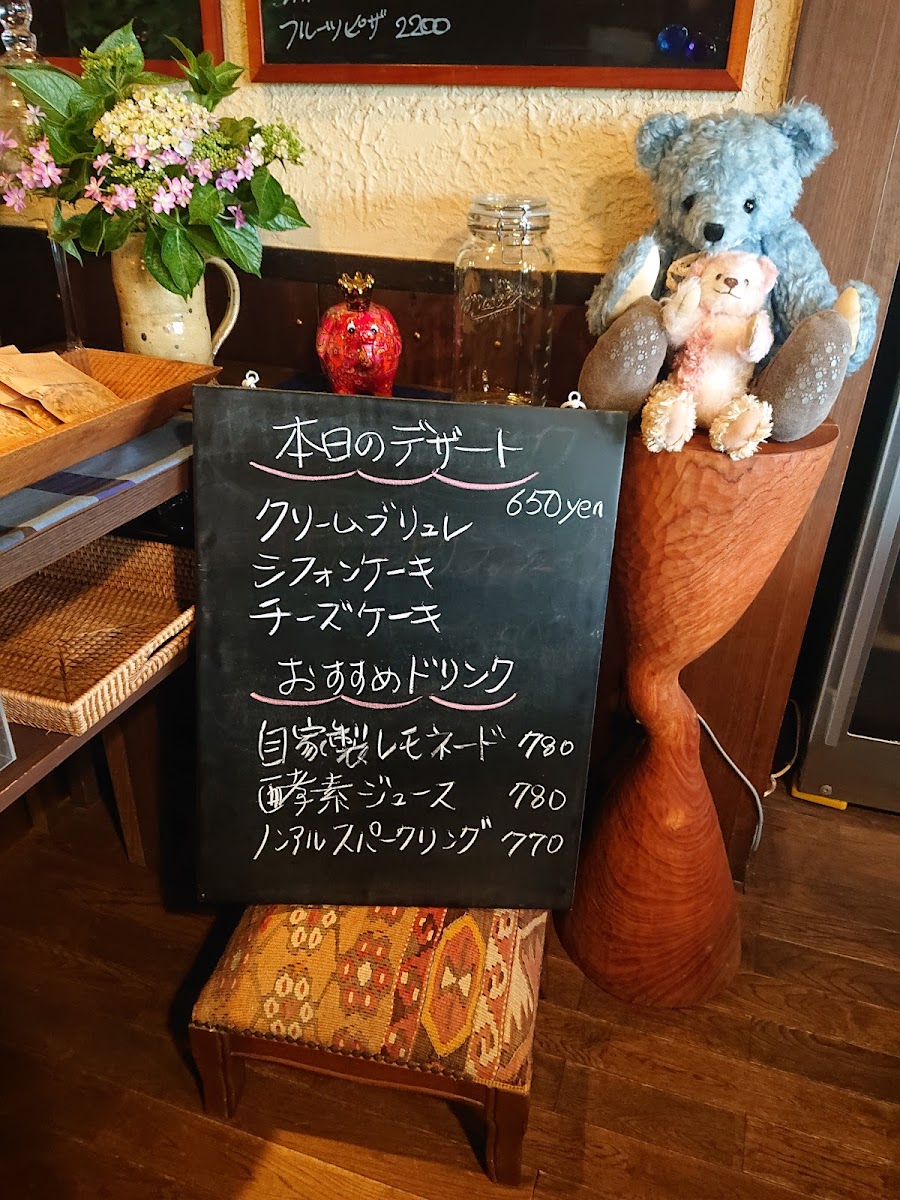 フルーツピザ 2200
本日のデザート
650yen
クリームブリュレ
シフォンケーキ
チーズケーキ
おすすめドリンク
自家製レモネード 780
酵素ジュース 780
ノンアルスパークリング 770